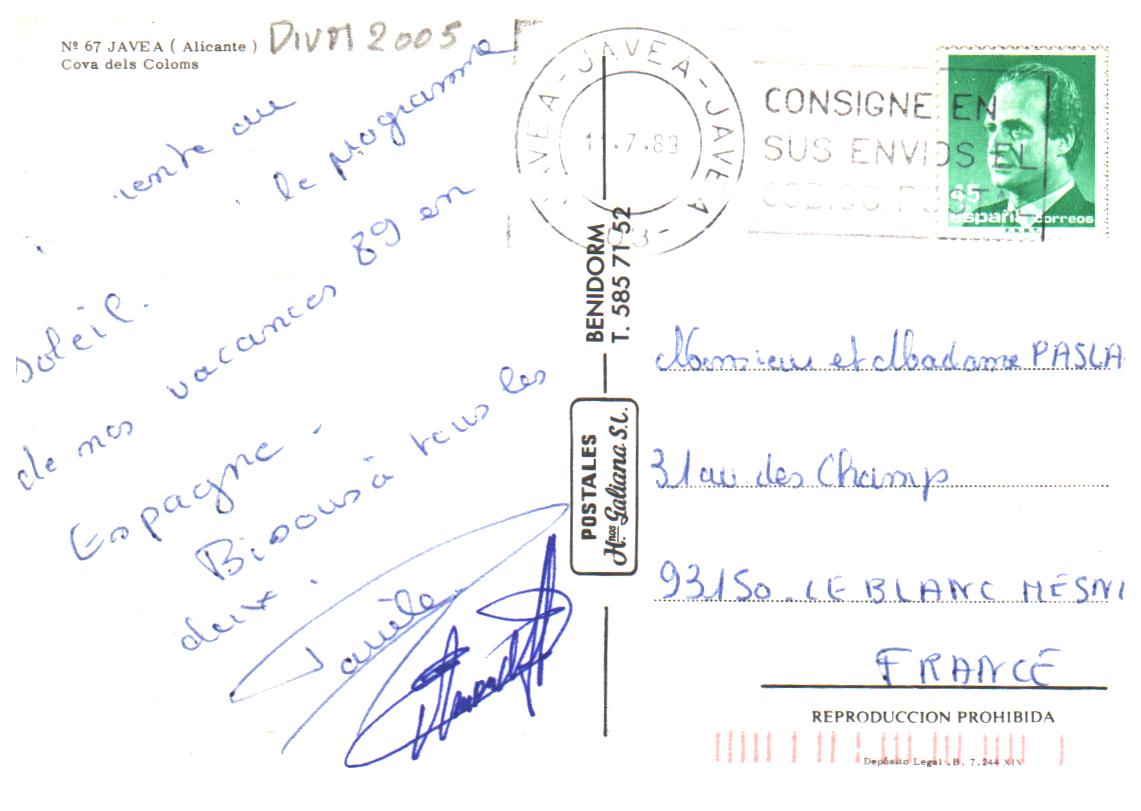 Nº 67 JAVEA ( Alicante ) DIVM 2005
Cova dels Coloms
JAVEA - JAVEA - JAVEA
.7.89
03
CONSIGNE EN
SUS ENVIOS EL
CODIGO POSTAL
45
españa correos
F.N.M.T.
le programme
soleil.
de nos vacances 89 en
Espagne -
Bisous à tous les
deux.
BENIDORM
T. 585 71 52
POSTALES
H.nos Galiana S.L.
Monsieur et Madame PASLA
31 av des Champs
93150. LE BLANC MESNI
FRANCE
REPRODUCCION PROHIBIDA
Depósito Legal . B. 7.244 XIX